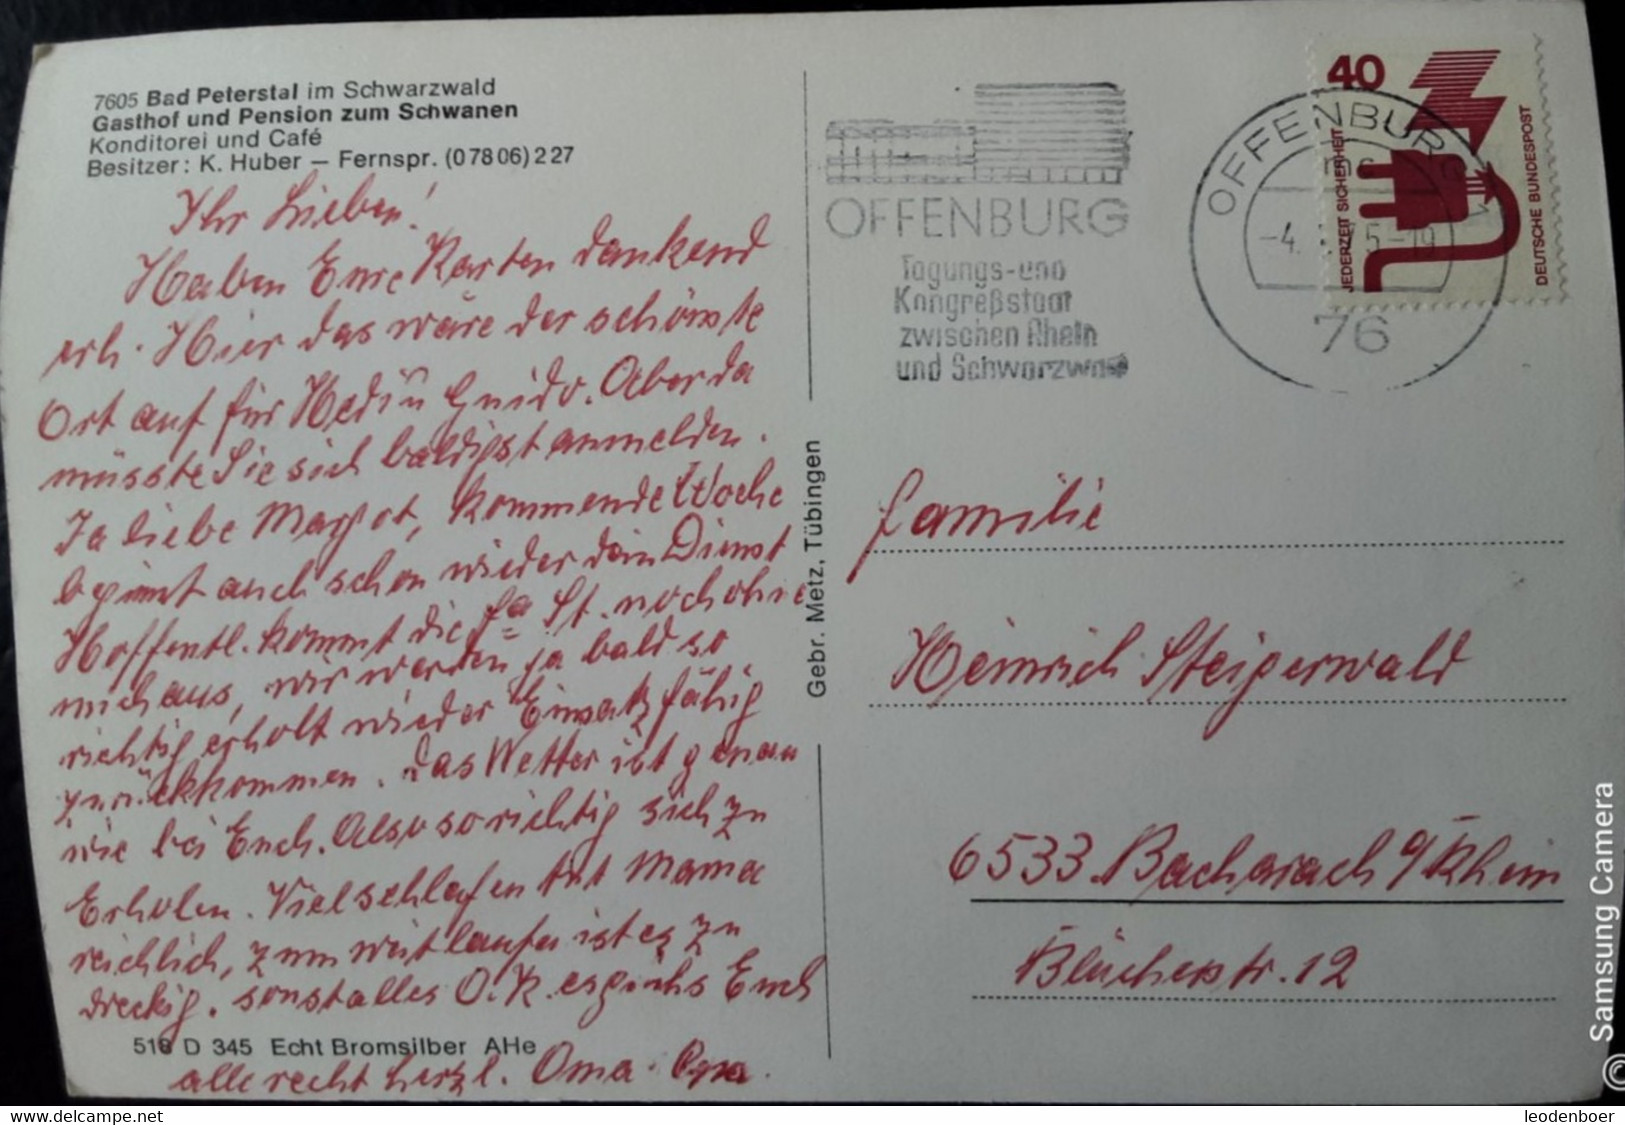 7605 Bad Peterstal im Schwarzwald
Gasthof und Pension zum Schwanen
Konditorei und Café
Besitzer: K. Huber – Fernspr. (07806) 227
Ihr Lieben!
Haben Eure Karten dankend
erh. Hier das wäre der schönste
Ort auf für Hedi u Guido. Aber da
müsste Sie sich baldigst anmelden.
Ja liebe Margot, kommende Woche
beginnt auch schon wieder dein Dienst
Hoffentl. kommt die Fa St. noch ohne
mich aus, wir werden ja bald so
richtig erholt wieder Einsatzfähig
zurückkommen. Das Wetter ist genau
wie bei Euch. Also so richtig sich zu
Erholen. Viel schlafen tut Mama
reichlich, zum weitlaufen ist es zu
dreckig. sonst alles O.K. es grüsst Euch
518 D 345 Echt Bromsilber AHe
alle recht herzl. Oma. Opa.
Gebr. Metz, Tübingen
OFFENBURG
Tagungs-und
Kongreßstadt
zwischen Rhein
und Schwarzwald
OFFENBURG
76
40
JEDERZEIT SICHERHEIT
DEUTSCHE BUNDESPOST
Familie
Heinrich Steigerwald
6533 Bacharach a/Rhein
Blücherstr. 12
© Samsung Camera
www.delcampe.net
leodenboer